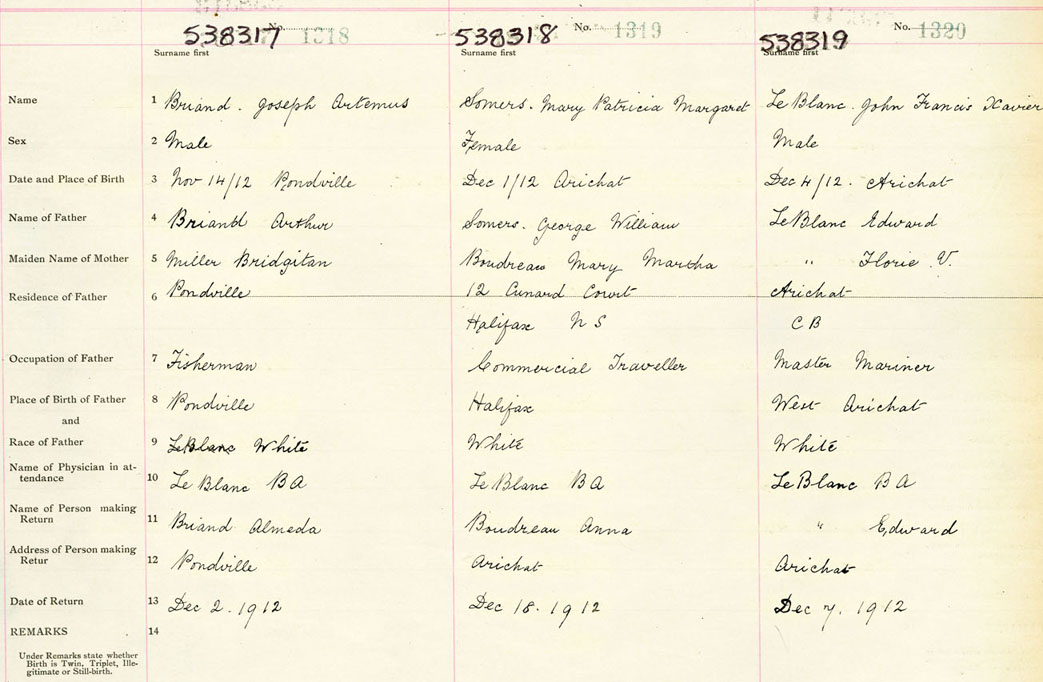 538317 No. 1318 538318 No. 1319 538319 No. 1320
Surname first Surname first Surname first
Name 1 Briand. Joseph Artemus Somers. Mary Patricia Margaret Le Blanc. John Francis Xavier
Sex 2 Male Female Male
Date and Place of Birth 3 Nov 14/12 Pondville Dec 1/12 Arichat Dec 4/12. Arichat
Name of Father 4 Briand Arthur Somers. George William LeBlanc Edward
Maiden Name of Mother 5 Miller Bridgitan Boudreau Mary Martha " Florie V.
Residence of Father 6 Pondville 12 Cunard Court Arichat
Halifax N S C B
Occupation of Father 7 Fisherman Commercial Traveller Master Mariner
Place of Birth of Father 8 Pondville Halifax West Arichat
and
Race of Father 9 LeBlanc White White White
Name of Physician in at-
tendance 10 Le Blanc B A Le Blanc B A Le Blanc B A
Name of Person making
Return 11 Briand Almeda Boudreau Anna " Edward
Address of Person making
Retur 12 Pondville Arichat Arichat
Date of Return 13 Dec 2. 1912 Dec 18. 1912 Dec 7. 1912
REMARKS . 14
Under Remarks state whether
Birth is Twin, Triplet, Ille-
gitimate or Still-birth.